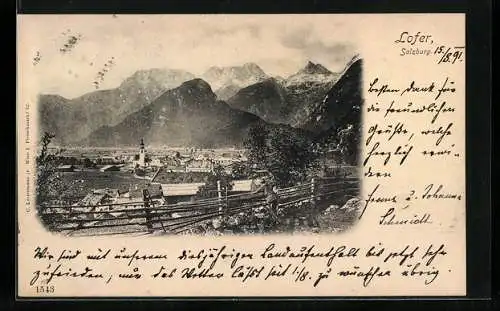 Lofer,
Salzburg. 15/8.91.
besten Dank für
die freundlichen
Grüße, welche
herzlich erwi-
dern
Franz u. Johanna
Schmidt.
Wir sind mit unserem diesjährigen Landaufenthalt bis jetzt sehr
zufrieden, nur das Wetter läßt seit 1./8. zu wünschen übrig.
1543